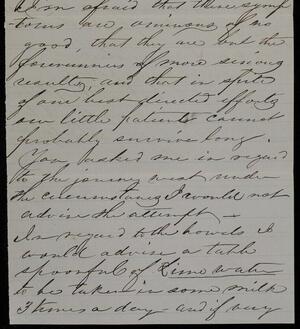 I am afraid that these symp
toms are ominous of no
good, that they are but the
forerunners of more serious
results, and that in spite
of our best directed efforts
our little patient cannot
probably survive long.
You asked me in regard
to the journey west under
the circumstances I would not
advise the attempt —
In regard to the bowels I
would advise a table
spoonful of Lime water
to be taken in some milk
3 times a day — and if any